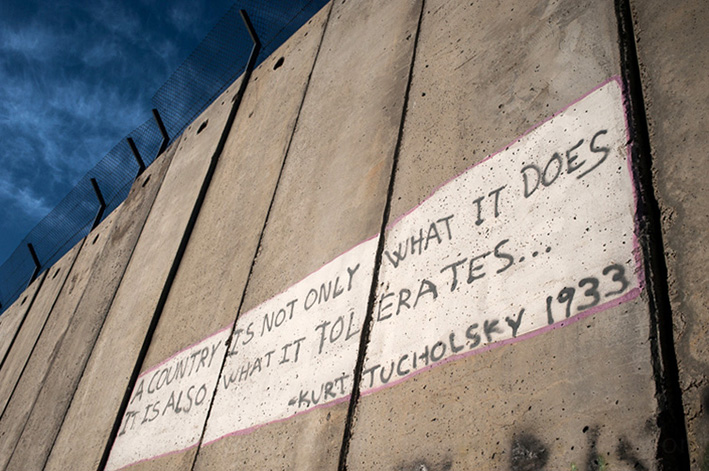 A COUNTRY IS NOT ONLY WHAT IT DOES
IT IS ALSO WHAT IT TOLERATES...
-KURT TUCHOLSKY 1933